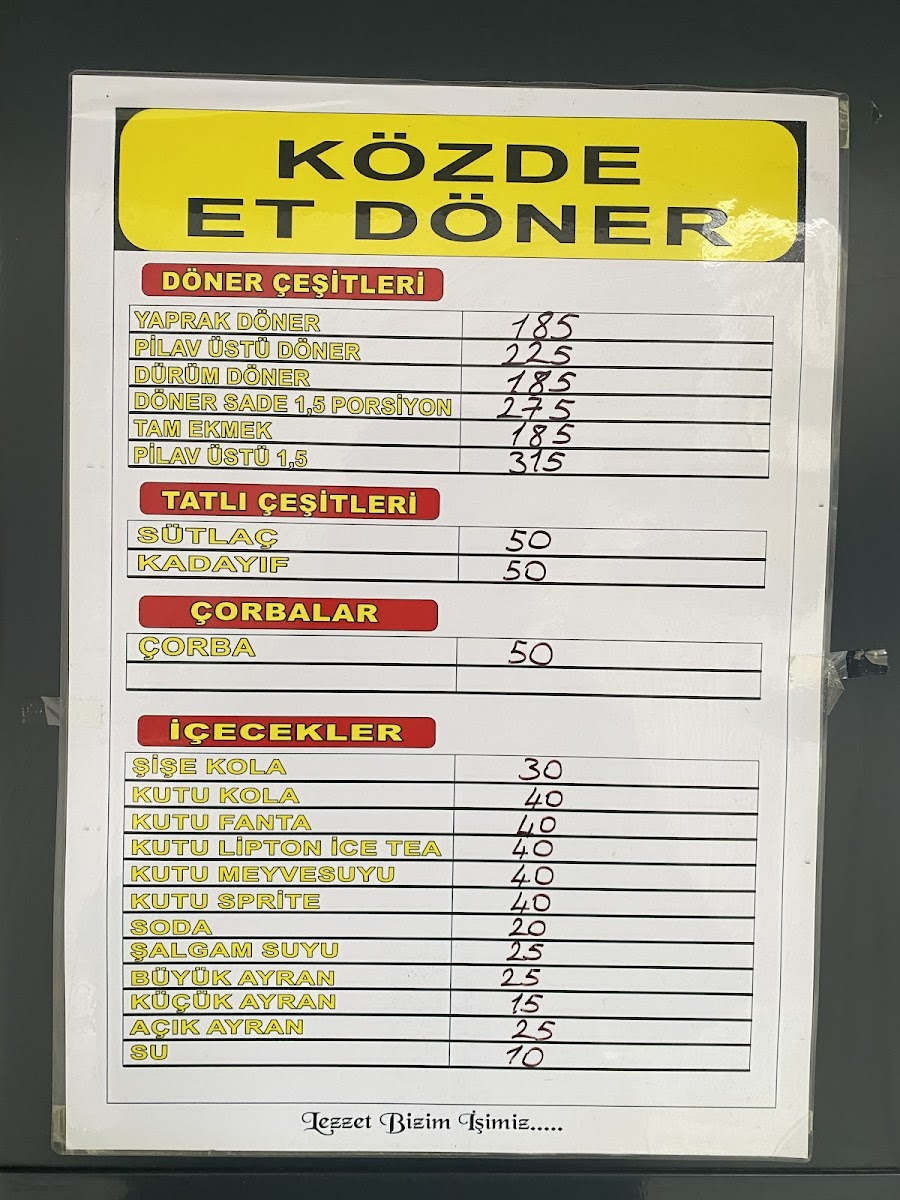 KÖZDE
ET DÖNER
DÖNER ÇEŞİTLERİ
YAPRAK DÖNER 185
PİLAV ÜSTÜ DÖNER 225
DÜRÜM DÖNER 185
DÖNER SADE 1,5 PORSİYON 275
TAM EKMEK 185
PİLAV ÜSTÜ 1,5 315
TATLI ÇEŞİTLERİ
SÜTLAÇ 50
KADAYIF 50
ÇORBALAR
ÇORBA 50
İÇECEKLER
ŞİŞE KOLA 30
KUTU KOLA 40
KUTU FANTA 40
KUTU LİPTON İCE TEA 40
KUTU MEYVESUYU 40
KUTU SPRİTE 40
SODA 20
ŞALGAM SUYU 25
BÜYÜK AYRAN 25
KÜÇÜK AYRAN 15
AÇIK AYRAN 25
SU 10
Lezzet Bizim İşimiz.....